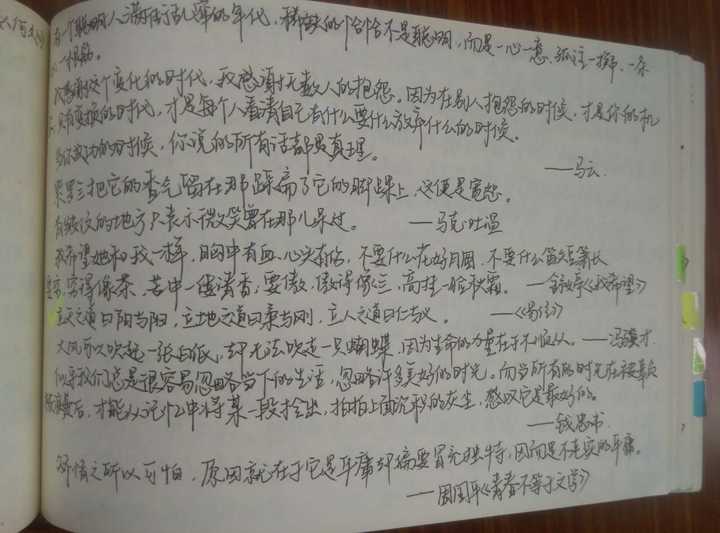 在一个聪明人满街乱窜的年代，稀缺的恰恰不是聪明，而是一心一意，孤注一掷，一条
心，一根筋。
我感谢这个变化的时代，我感谢无数人的抱怨。因为在别人抱怨的时候，才是你的机
会，只有变换的时代，才是每个人看清自己有什么要什么放弃什么的时候。
当你成功的时候，你说的所有话都是真理。
——马云
紫罗兰把它的香气留在那踩扁了它的脚踝上，这便是宽恕。
有皱纹的地方只表示微笑曾在那儿呆过。 ——马克·吐温
我希望她和我一样，胸中有血，心头有伤，不要什么花好月圆，不要什么笛短箫长
要穷，穷得像茶，苦中一缕清香；要傲，傲得像兰，高挂一脸秋霜。 ——《我希望》
立天之道曰阴与阳，立地之道曰柔与刚，立人之道曰仁与义。 ——《易传》
大风可以吹起一张白纸，却无法吹走一只蝴蝶，因为生命的力量在于不顺从。 ——冯骥才
似乎我们总是很容易忽略当下的生活，忽略许多美好的时光。而当所有的时光在被辜负
被浪费后，才能从记忆中将某一段拎出，拍拍上面沉积的灰尘，感叹它是最好的。
——钱思书
矫情之所以可怕，原因就在于它是平庸却偏要冒充独特，因而是不老实的平庸。
——周国平《青春不等于文学》